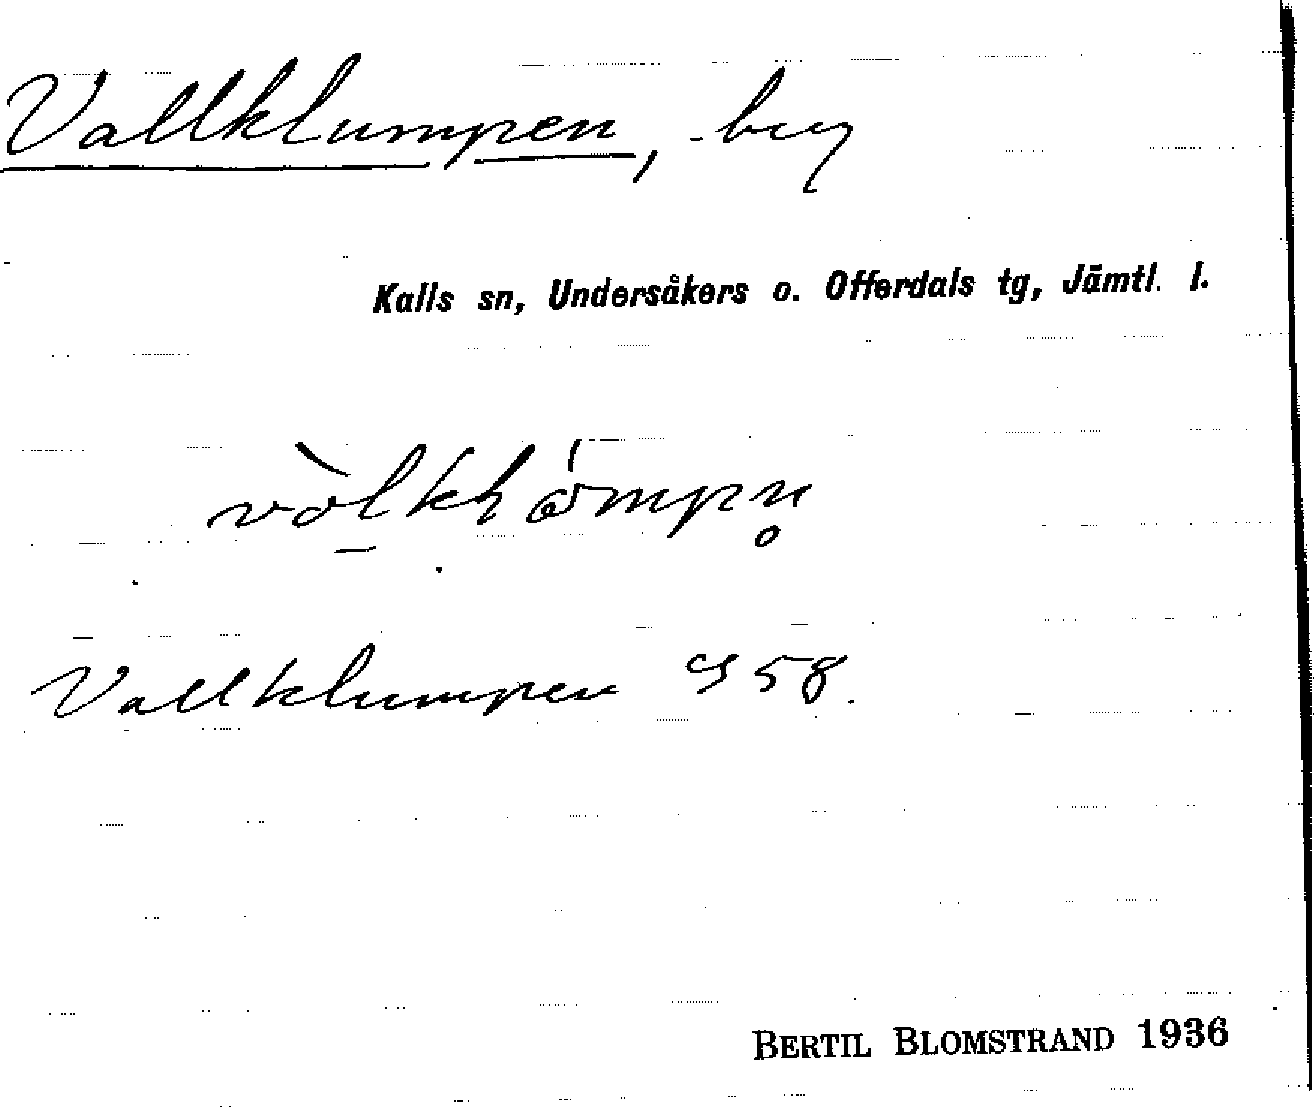 Vallklumpen, berg
Kalls sn, Undersåkers o. Offerdals tg, Jämtl. l.
Vallklumpen G58.
BERTIL BLOMSTRAND 1936